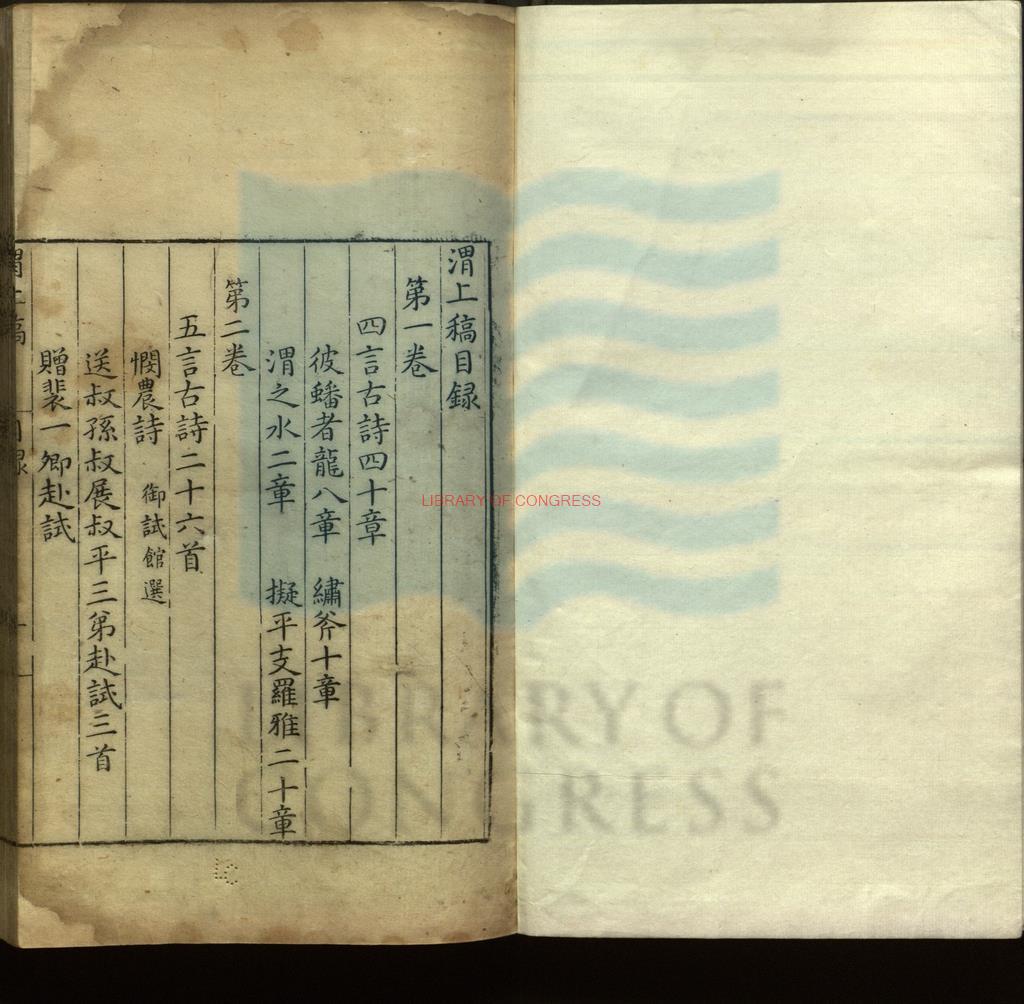 渭上稿目録
第一卷
四言古詩四十章
彼蟠者龍八章　繡斧十章
渭之水二章　擬平支羅雅二十章
第二卷
五言古詩二十六首
憫農詩　御試館選
送叔孫叔展叔平三弟赴試三首
贈裴一卿赴試
渭上稿　目録
LIBRARY OF CONGRESS
LIBRARY OF
CONGRESS